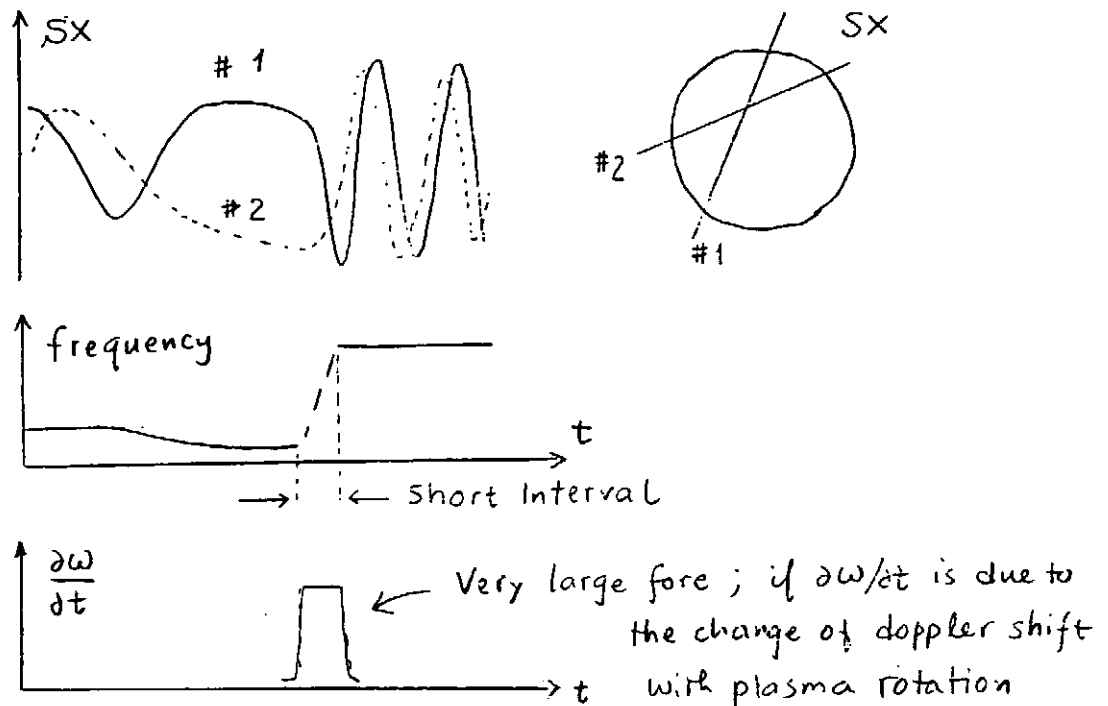 SX
# 1
# 2
SX
#2
#1
frequency
t
Short Interval
∂ω/∂t
Very large fore ; if ∂ω/∂t is due to
the change of doppler shift
with plasma rotation
t